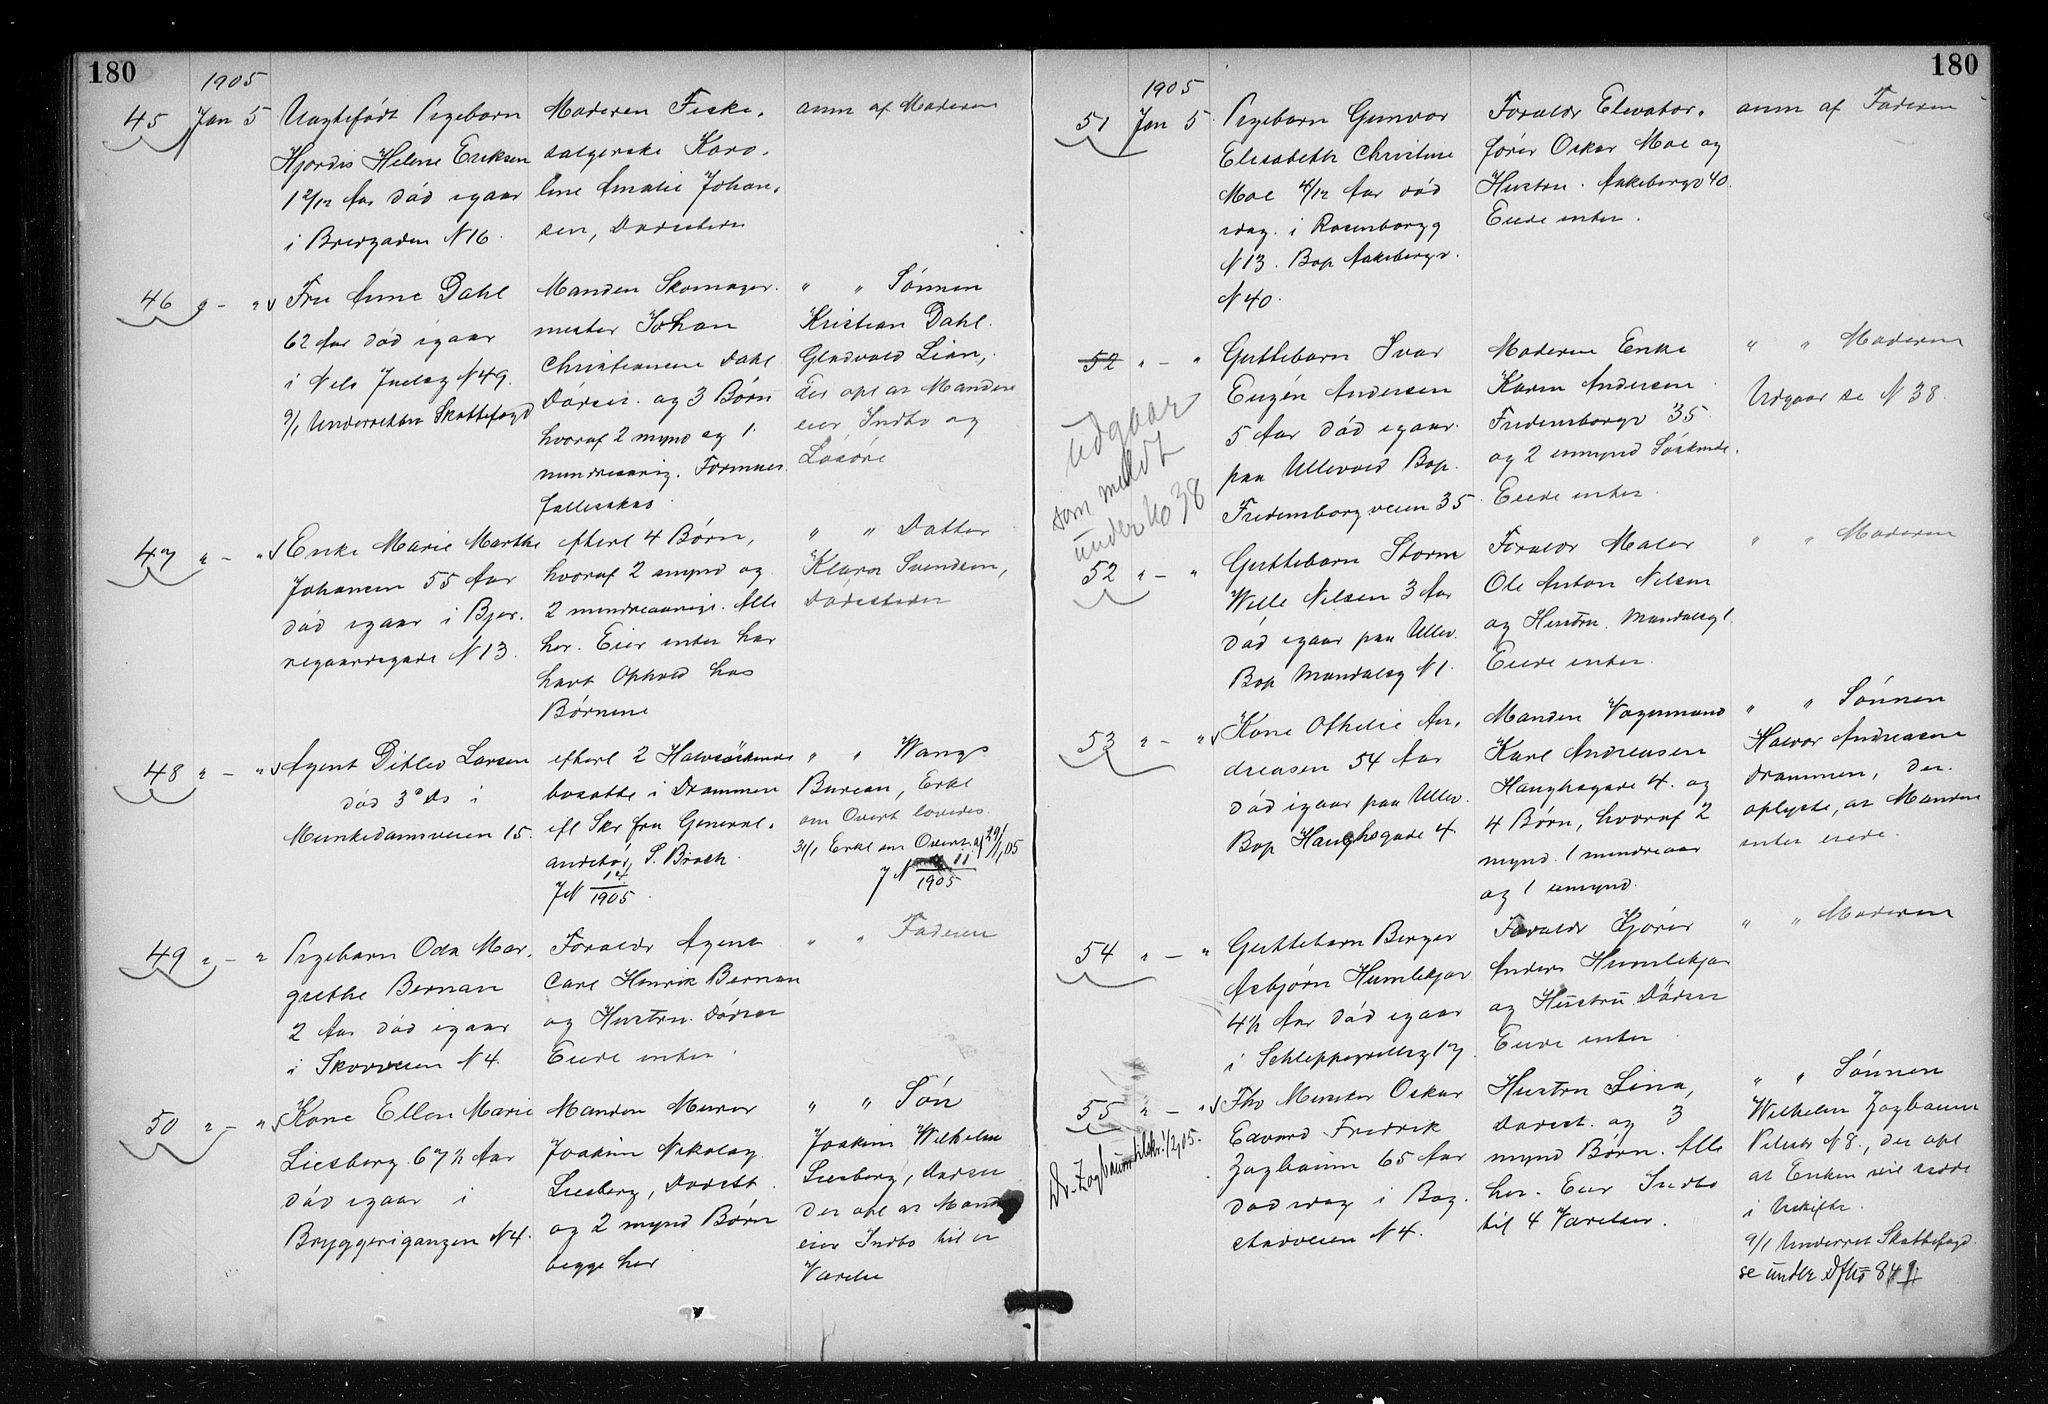 180
1905
45 Jan 5
Uægtefødt Pigebarn
Hjørdis Helene Eriksen
1 2/12 Aar død igaar
i Bredgaden N 16.
Moderen Fiske-
sælgerske Karo-
line Amalie Johan-
sen, Dødsstedn
anm af Moderen
46 " - "
Fru Anne Dahl
62 Aar død igaar
i Nels Juelsg N 49.
9/1 Underretten Skattefogd
Manden Skomager-
mester Johan
Christiansen Dahl
Dødsst. og 3 Børn
hvoraf 2 mynd og 1
mindreaarig. Formues-
fællesskab.
" " Sønnen
Kristian Dahl.
Der opl at Manden
eier Indbo og
Løsøre
47 " - "
Enke Marie Marthe
Johansen 55 Aar
død igaar i Bjer-
regaardsgade N 13.
efterl 4 Børn,
hvoraf 2 mynd og
2 mindreaarige. Alle
her. Eier intet har
havt Ophold hos
Børnene
" " Datter
Klara Svendsen,
Dødsstedn
48 " - "
Agent Ditlev Larsen
død 3de ds i
Munkedamsveien 15.
efterl 2 Halvsøskende
bosatte i Drammen
efl Skr fra General-
auditør S. Broch.
J N 14/1905.
" " Wangs
Bureau, Erkl
om Overt loveds.
31/1 Erkl om Overt. af 29/1,05
J N 11/1905
49 " - "
Pigebarn Oda Mar-
grethe Bernan
2 Aar død igaar
i Skovveien N 4.
Forældr Agent
Carl Henrik Bernan
og Hustru. Dødsst
Eiede intet.
" " Faderen
50 " - "
Kone Ellen Marie
Liesberg 67 1/2 Aar
død igaar i
Bryggerigangen N 4.
Manden Murer
Joakim Nikolay
Liesberg, Dødsst
og 2 mynd Børn
begge her
" " Søn
Joakim Wilhelm
Liesberg, Dødsst
Der opl at Manden
eier Indbo til en
Værelse
180
1905
51 Jan 5
Pigebarn Gunvor
Elisabeth Christine
Moe 4/12 Aar død
idag i Rosenborgg
N 13. Bop Aakebergv.
N 40.
Forældr Elevator-
fører Oskar Moe og
Hustru. Aakebergv 40.
Eiede intet.
anm af Faderen
52 " - "
Guttebarn Ivar
Eugén Andersen
5 Aar død igaar
paa Ullevold Bop.
Fredensborgveien 35
Moderen Enke
Karen Andersen
Fredensborgv 35
og 2 umynd Søskende.
Eiede intet.
" " Moderen
Udgaar se N 38.
Udgaar
som meldt
under No 38
52 " - "
Guttebarn Storm
Wille Nilsen 3 Aar
død igaar paa Ullev.
Bop Mandalsg N 1.
Forældr Maler
Ole Anton Nilsen
og Hustru. Mandalsg 1.
Eiede intet.
" " Moderen
53 " - "
Kone Othelie An-
dreasen 54 Aar
død igaar paa Ullev.
Bop Haughsgade 4.
Manden Vognmand
Karl Andreasen
Haughsgade 4. og
4 Børn, hvoraf 2
mynd. 1 mindreaar
og 1 umynd.
" " Sønnen
Halvor Andreasen
Drammen, der
oplyste, at Manden
intet eiede.
54 " - "
Guttebarn Berger
Asbjørn Humlekjær
4 1/2 Aar død igaar
i Schleppegrellsg 17
Forældr Kjører
Anders Humlekjær
og Hustru Dødsst
Eiede intet
" " Moderen
55 " - "
Fhv Musiker Oskar
Edvard Fredrik
Zogbaum 65 Aar
død idag i Bog-
stadveien N 4.
Hustru Lina,
Dødsst. og 3
mynd Børn. Alle
her. Eier Indbo
til 4 Værelser.
" " Sønnen
Wilhelm Zogbaum
Pilestr N 8., der opl
at Enken vil sidde
i Uskifte.
9/1 Underret Skattefogd.
se under Dfno 849
Dr. Zogbaum tilskr. 1/2,05.